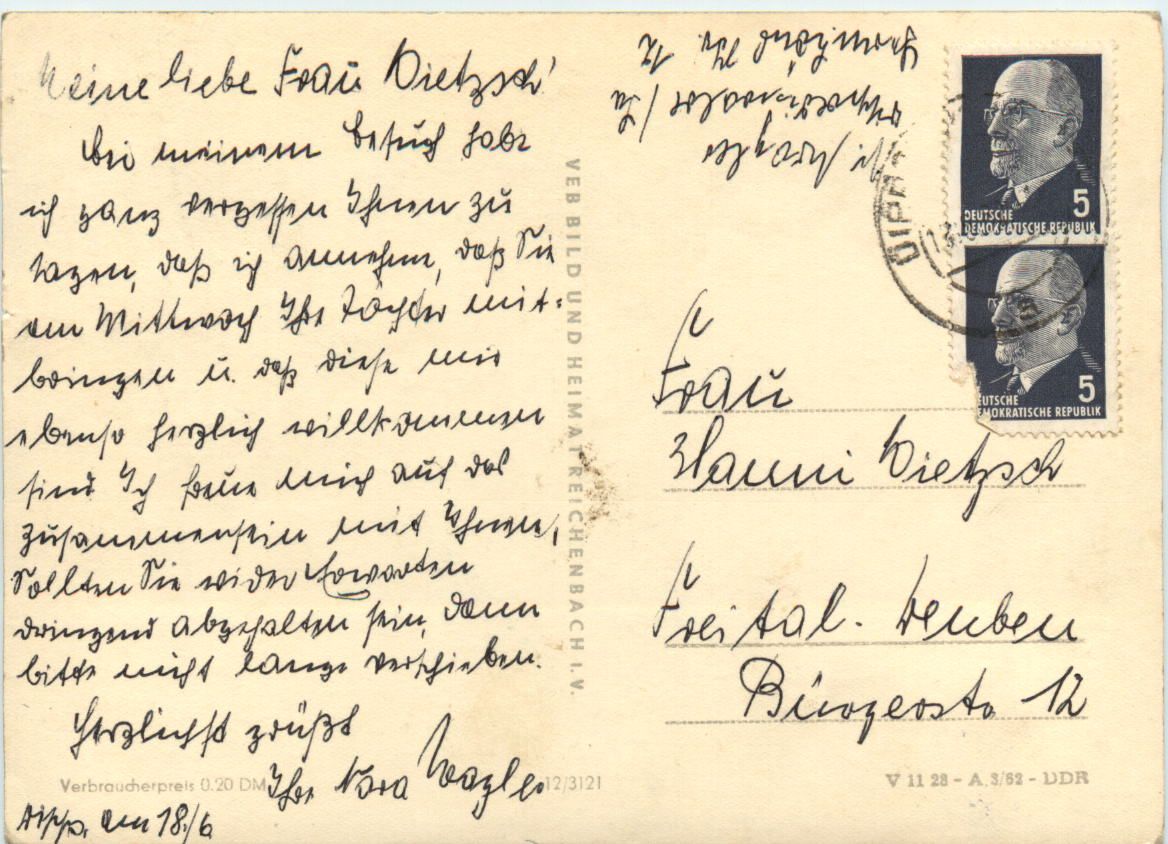 Meine liebe Frau Dietzsch!
Bei meinem Besuch habe
ich ganz vergessen Ihnen zu
sagen, daß ich annehme, daß Sie
am Mittwoch Ihre Tochter mit-
bringen u. daß diese mir
ebenso herzlich willkommen
sind Ich freue mich auf das
Zusammensein mit Ihnen,
Sollten Sie wider Erwarten
dringend abgehalten sein, dann
bitte nicht lange verschieben.
Herzlichst grüßt
Ihre Nora Wagler
Dipps. am 18./6
VEB BILD UND HEIMAT REICHENBACH I. V.
Verbraucherpreis 0.20 DM
12/3121
Wagler
DIPP
DEUTSCHE
DEMOKRATISCHE REPUBLIK
5
EUTSCHE
EMOKRATISCHE REPUBLIK
5
Frau
Hanni Dietzsch
Freital-Deuben
Bürgerstr 12
V 11 28 - A 3/62 - DDR